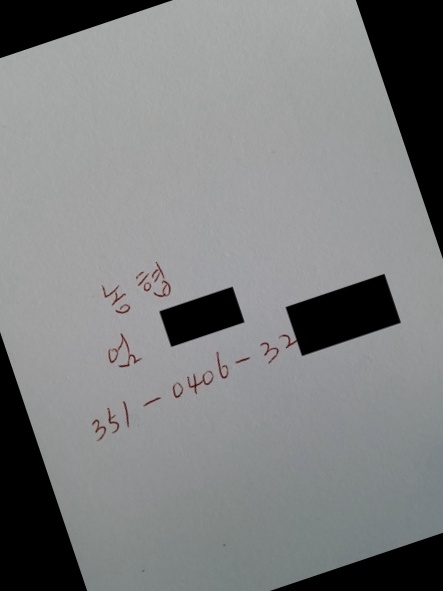 농협
오
351-0406-32